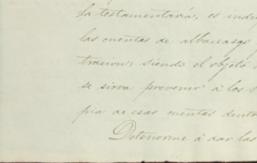 la testamentaría, es indu
las cuentas de albaceazgo
tracion; siendo el objeto
se sirva prevenir á los
pia de esas cuentas dentro
Detenerme á dar las